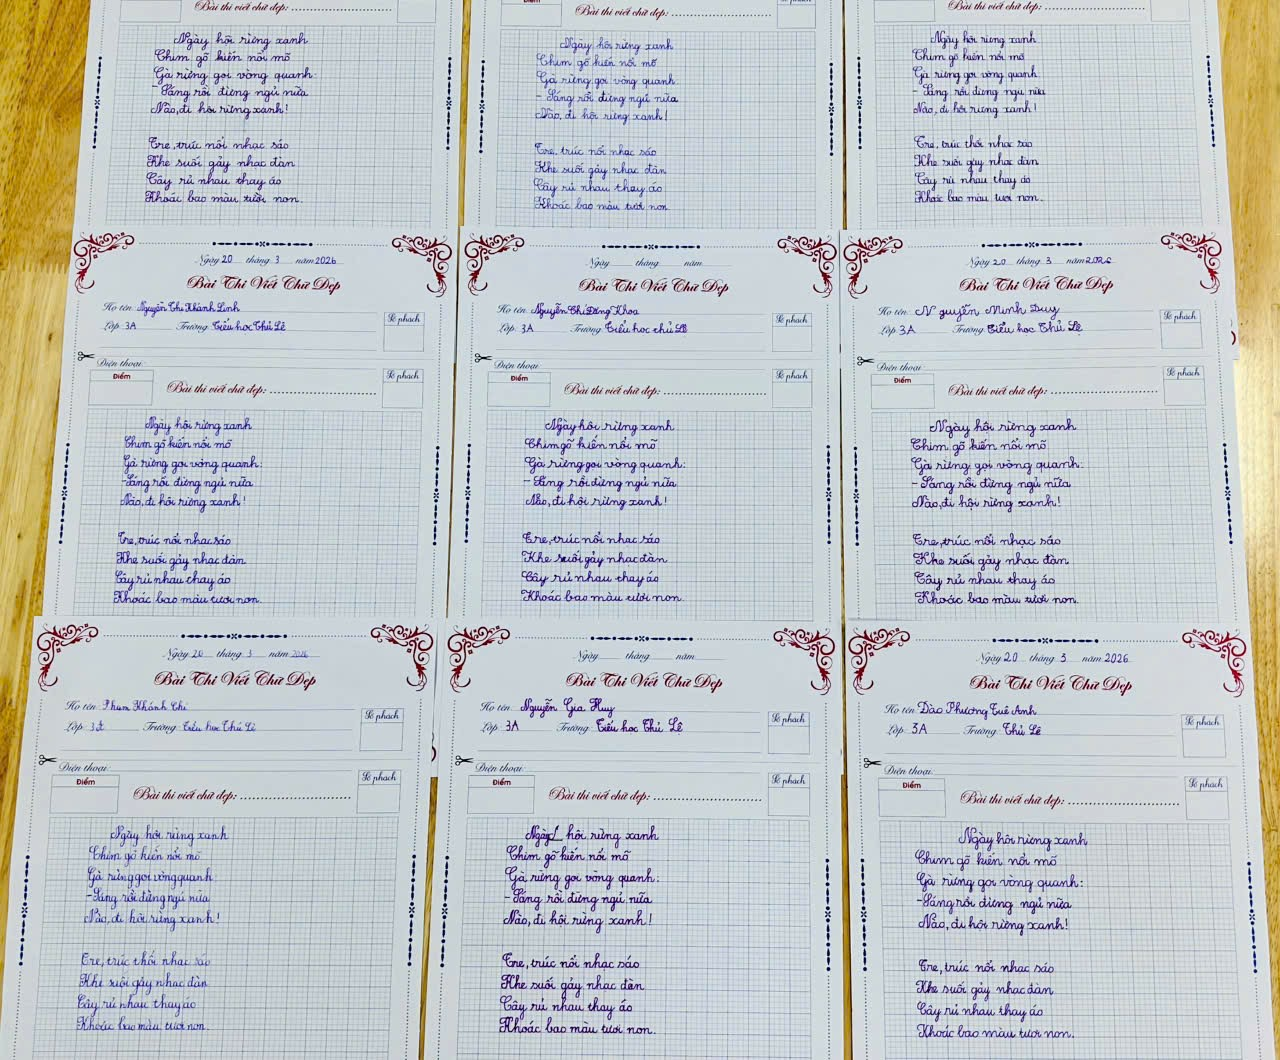 Điểm
Bài thi viết chữ đẹp:
Ngày hội rừng xanh
Chim gõ kiến nổi mõ
Gà rừng gọi vòng quanh:
- Sáng rồi đừng ngủ nữa
Nào, đi hội rừng xanh!
Tre, trúc nổi nhạc sáo
Khe suối gảy nhạc đàn
Cây rủ nhau thay áo
Khoác bao màu tươi non.
Điểm
Bài thi viết chữ đẹp:
Số phách
Ngày hội rừng xanh
Chim gõ kiến nổi mõ
Gà rừng gọi vòng quanh:
- Sáng rồi đừng ngủ nữa
Nào, đi hội rừng xanh!
Tre, trúc nổi nhạc sáo
Khe suối gảy nhạc đàn
Cây rủ nhau thay áo
Khoác bao màu tươi non
Bài thi viết chữ đẹp:
Ngày hội rừng xanh
Chim gõ kiến nổi mõ
Gà rừng gọi vòng quanh:
- Sáng rồi đừng ngủ nữa
Nào, đi hội rừng xanh!
Tre, trúc thổi nhạc sáo
Khe suối gảy nhạc đàn
Cây rủ nhau thay áo
Khoác bao màu tươi non.
Ngày 20 tháng 3 năm 2026
Bài Thi Viết Chữ Đẹp
Họ tên: Nguyễn Thị Khánh Linh
Lớp: 3A Trường: Tiểu học Thủ Lệ
Số phách
Điện thoại:
Điểm
Bài thi viết chữ đẹp:
Số phách
Ngày hội rừng xanh
Chim gõ kiến nổi mõ
Gà rừng gọi vòng quanh:
- Sáng rồi đừng ngủ nữa
Nào, đi hội rừng xanh!
Tre, trúc nổi nhạc sáo
Khe suối gảy nhạc đàn
Cây rủ nhau thay áo
Khoác bao màu tươi non.
Ngày tháng năm
Bài Thi Viết Chữ Đẹp
Họ tên: Nguyễn Chí Đăng Khoa
Lớp: 3A Trường: Tiểu học Thủ Lệ
Số phách
Điện thoại:
Điểm
Bài thi viết chữ đẹp:
Số phách
Ngày hội rừng xanh
Chim gõ kiến nổi mõ
Gà rừng gọi vòng quanh:
- Sáng rồi đừng ngủ nữa
Nào, đi hội rừng xanh!
Tre, trúc nổi nhạc sáo
Khe suối gảy nhạc đàn
Cây rủ nhau thay áo
Khoác bao màu tươi non.
Ngày 20 tháng 3 năm 2026
Bài Thi Viết Chữ Đẹp
Họ tên: Nguyễn Minh Duy
Lớp: 3A Trường: Tiểu học Thủ Lệ
Số phách
Điện thoại:
Điểm
Bài thi viết chữ đẹp:
Số phách
Ngày hội rừng xanh
Chim gõ kiến nổi mõ
Gà rừng gọi vòng quanh:
- Sáng rồi đừng ngủ nữa
Nào, đi hội rừng xanh!
Tre, trúc nổi nhạc sáo
Khe suối gảy nhạc đàn
Cây rủ nhau thay áo
Khoác bao màu tươi non.
Ngày 20 tháng 3 năm 2026
Bài Thi Viết Chữ Đẹp
Họ tên: Phạm Khánh Chi
Lớp: 3A Trường: Tiểu học Thủ Lệ
Số phách
Điện thoại:
Điểm
Bài thi viết chữ đẹp:
Số phách
Ngày hội rừng xanh
Chim gõ kiến nổi mõ
Gà rừng gọi vòng quanh
- Sáng rồi đừng ngủ nữa
Nào, đi hội rừng xanh!
Tre, trúc thổi nhạc sáo
Khe suối gảy nhạc đàn
Cây rủ nhau thay áo
Khoác bao màu tươi non.
Ngày tháng năm
Bài Thi Viết Chữ Đẹp
Họ tên: Nguyễn Gia Huy
Lớp: 3A Trường: Tiểu học Thủ Lệ
Số phách
Điện thoại:
Điểm
Bài thi viết chữ đẹp:
Số phách
Ngày hội rừng xanh
Chim gõ kiến nổi mõ
Gà rừng gọi vòng quanh:
- Sáng rồi đừng ngủ nữa
Nào, đi hội rừng xanh!
Tre, trúc nổi nhạc sáo
Khe suối gảy nhạc đàn
Cây rủ nhau thay áo
Khoác bao màu tươi non.
Ngày 20 tháng 3 năm 2026
Bài Thi Viết Chữ Đẹp
Họ tên: Đào Phương Tuê Anh
Lớp: 3A Trường: Thủ Lệ
Số phách
Điện thoại:
Điểm
Bài thi viết chữ đẹp:
Số phách
Ngày hội rừng xanh
Chim gõ kiến nổi mõ
Gà rừng gọi vòng quanh:
- Sáng rồi đừng ngủ nữa
Nào, đi hội rừng xanh!
Tre, trúc nổi nhạc sáo
Khe suối gảy nhạc đàn
Cây rủ nhau thay áo
Khoác bao màu tươi non.